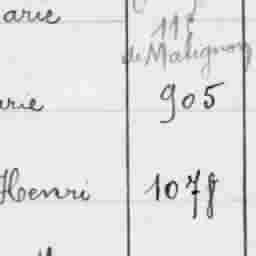 arie
118
de Matignon
arie 905
Henri 1078